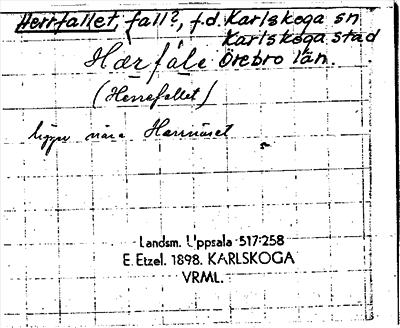 Herrfallet, fall?, f.d. Karlskoga sn
Karlskoga stad
Hærfále Örebro län.
(Herrefallet)
ligger nära Herrnäset
Landsm. Uppsala 517:258
E. Etzel. 1898. KARLSKOGA
VRML.